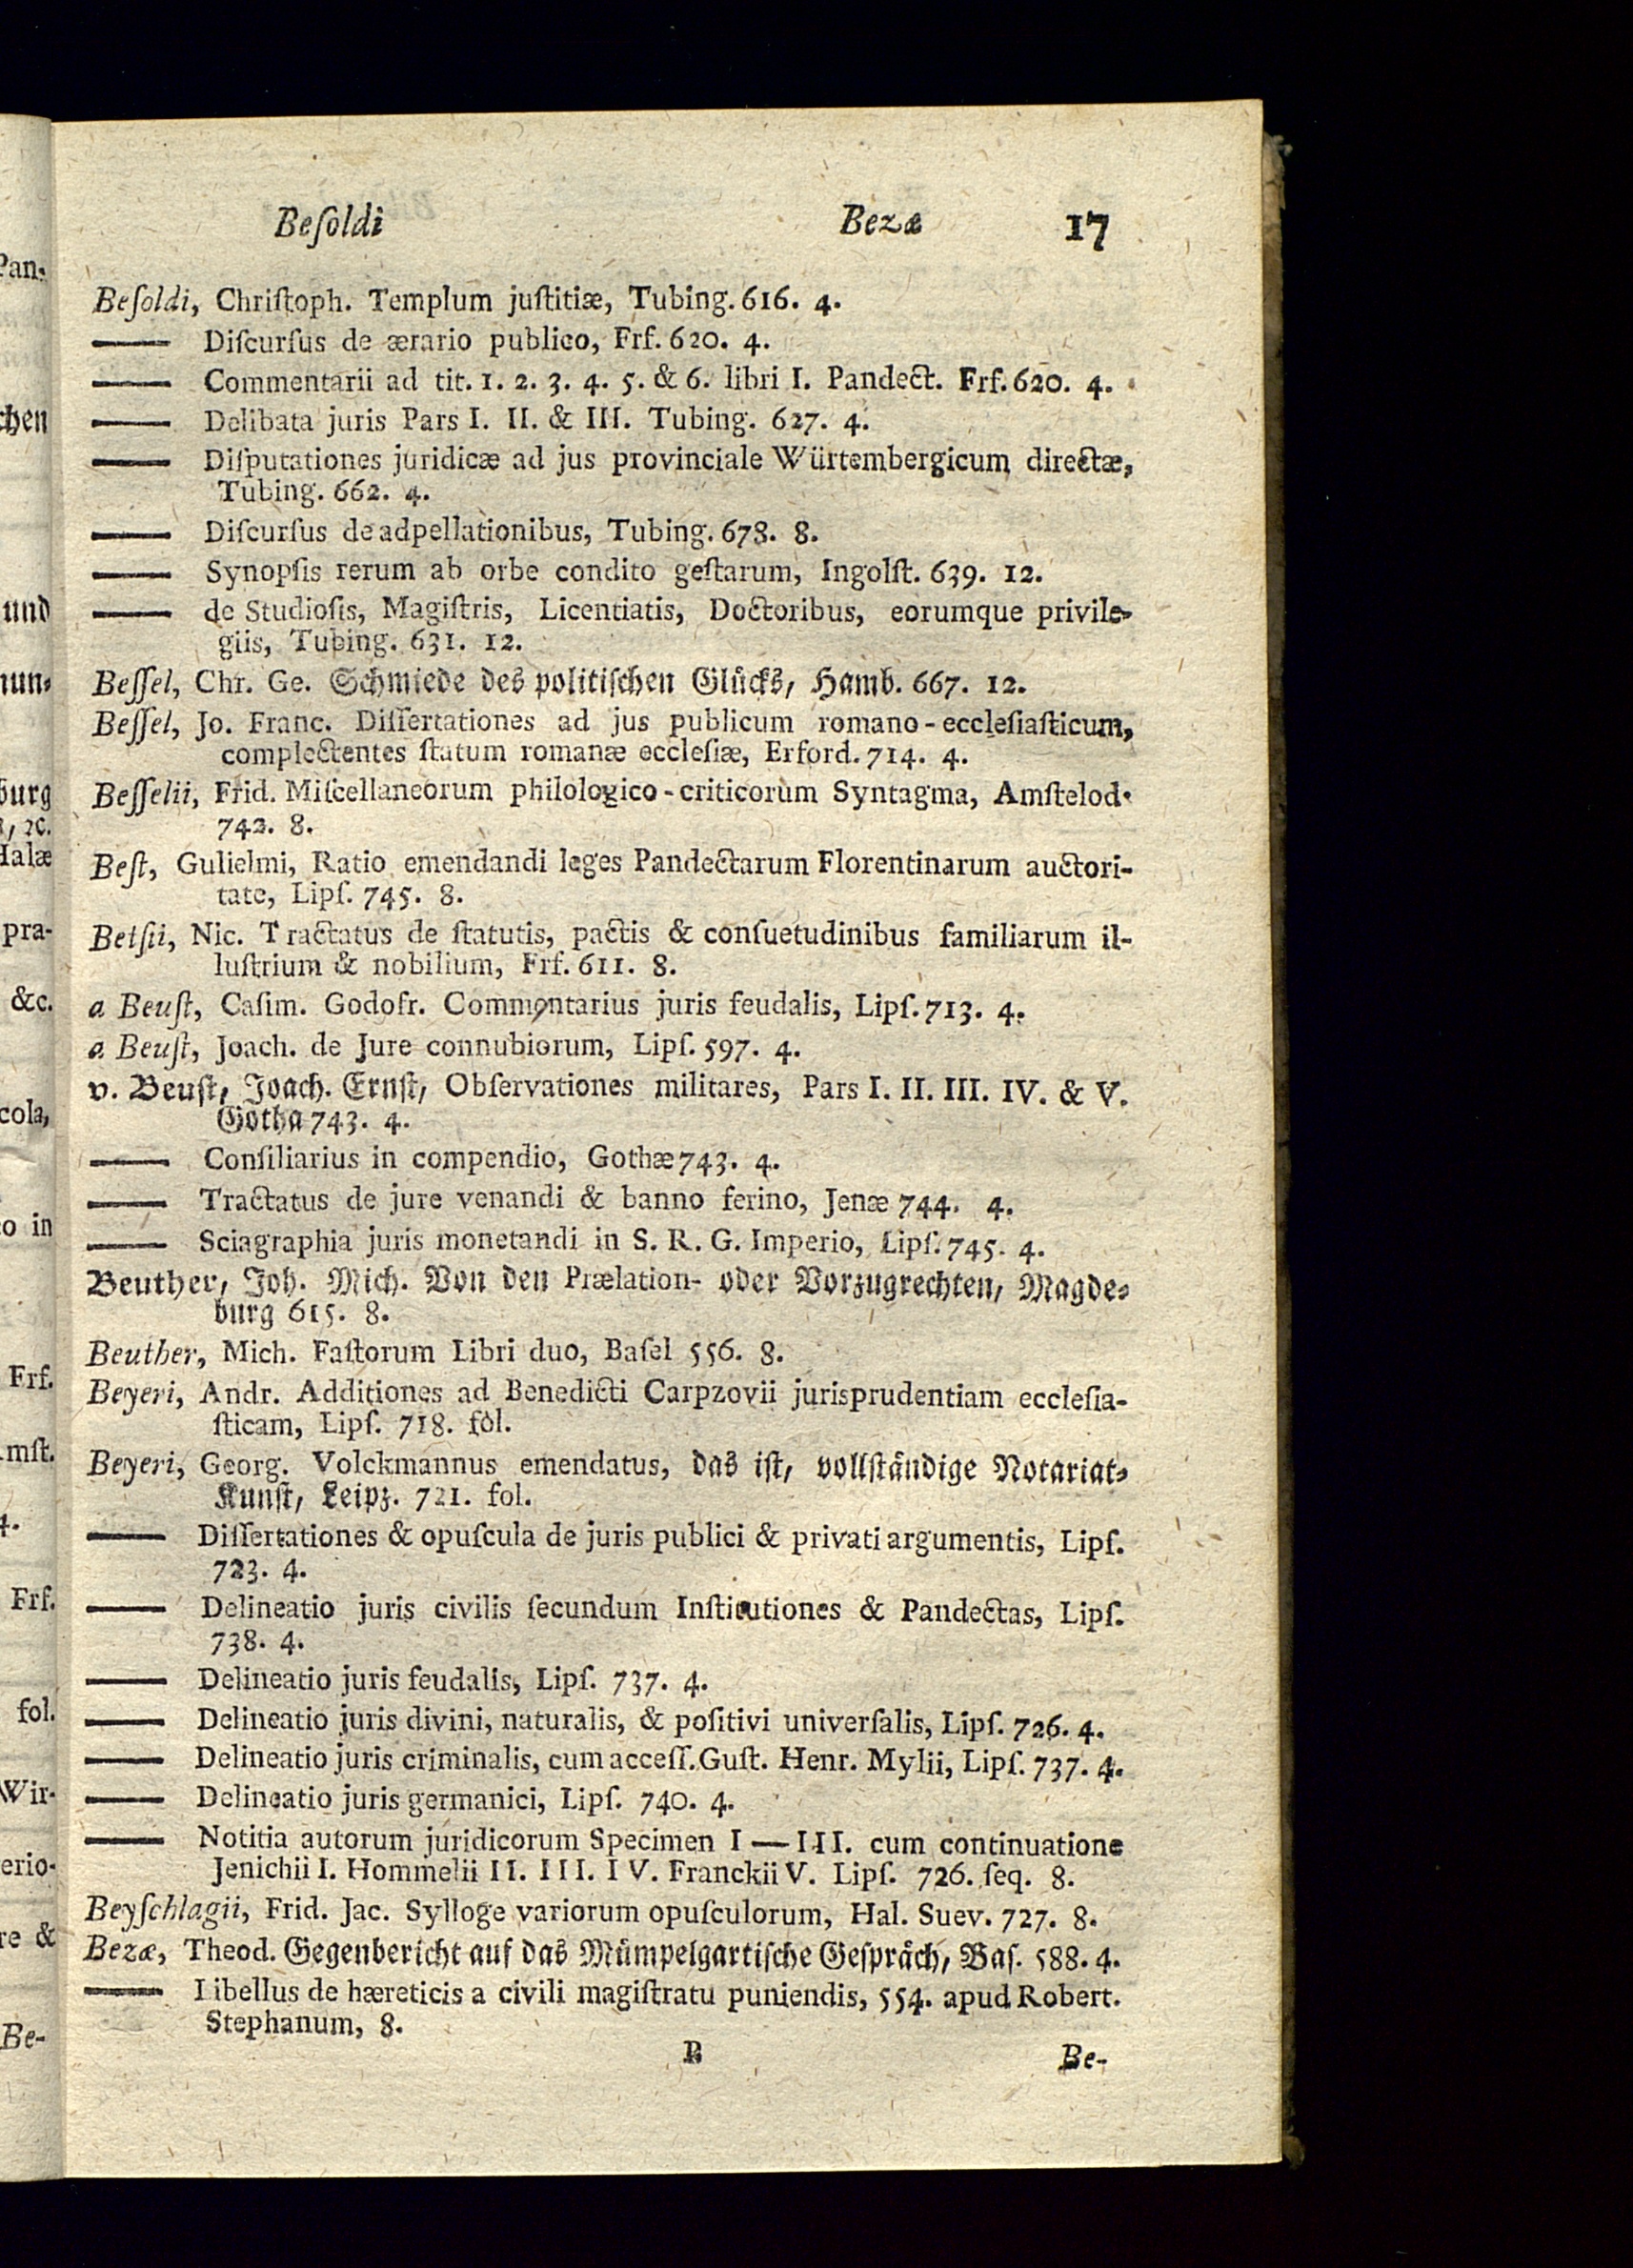 Beſoldi Bezæ 17
Beſoldi, Chriſtoph. Templum juſtitiæ, Tubing. 616. 4.
—— Diſcurſus de ærario publico, Frf. 620. 4.
—— Commentarii ad tit. 1. 2. 3. 4. 5. & 6. libri I. Pandect. Frf. 620. 4.
—— Delibata juris Pars I. II. & III. Tubing. 627. 4.
—— Diſputationes juridicæ ad jus provinciale Würtembergicum directæ,
Tubing. 662. 4.
—— Diſcurſus de adpellationibus, Tubing. 678. 8.
—— Synopſis rerum ab orbe condito geſtarum, Ingolſt. 639. 12.
—— de Studioſis, Magiſtris, Licentiatis, Doctoribus, eorumque privile-
giis, Tubing. 631. 12.
Beſſel, Chr. Ge. Schmiede des politiſchen Glücks, Hamb. 667. 12.
Beſſel, Jo. Franc. Diſſertationes ad jus publicum romano-eccleſiaſticum,
complectentes ſtatum romanæ eccleſiæ, Erford. 714. 4.
Beſſelii, Frid. Miſcellaneorum philologico-criticorum Syntagma, Amſtelod.
742. 8.
Beſt, Gulielmi, Ratio emendandi leges Pandectarum Florentinarum auctori-
tate, Lipſ. 745. 8.
Betſii, Nic. Tractatus de ſtatutis, pactis & conſuetudinibus familiarum il-
luſtrium & nobilium, Frf. 611. 8.
a Beuſt, Caſim. Godofr. Commentarius juris feudalis, Lipſ. 713. 4.
a Beuſt, Joach. de Jure connubiorum, Lipſ. 597. 4.
v. Beuſt, Joach. Ernſt, Obſervationes militares, Pars I. II. III. IV. & V.
Gotha 743. 4.
—— Conſiliarius in compendio, Gothæ 743. 4.
—— Tractatus de jure venandi & banno ferino, Jenæ 744. 4.
—— Sciagraphia juris monetandi in S. R. G. Imperio, Lipſ. 745. 4.
Beuther, Joh. Mich. Von den Prælation- oder Vorzugrechten, Magde-
burg 615. 8.
Beuther, Mich. Faſtorum Libri duo, Baſel 556. 8.
Beyeri, Andr. Additiones ad Benedicti Carpzovii jurisprudentiam eccleſia-
ſticam, Lipſ. 718. fol.
Beyeri, Georg. Volckmannus emendatus, das iſt, vollſtändige Notariat-
Kunſt, Leipz. 721. fol.
—— Diſſertationes & opuſcula de juris publici & privati argumentis, Lipſ.
723. 4.
—— Delineatio juris civilis ſecundum Inſtitutiones & Pandectas, Lipſ.
738. 4.
—— Delineatio juris feudalis, Lipſ. 737. 4.
—— Delineatio juris divini, naturalis, & poſitivi univerſalis, Lipſ. 726. 4.
—— Delineatio juris criminalis, cum acceſſ. Guſt. Henr. Mylii, Lipſ. 737. 4.
—— Delineatio juris germanici, Lipſ. 740. 4.
—— Notitia autorum juridicorum Specimen I — III. cum continuatione
Jenichii I. Hommelii II. III. IV. Franckii V. Lipſ. 726. ſeq. 8.
Beyſchlagii, Frid. Jac. Sylloge variorum opuſculorum, Hal. Suev. 727. 8.
Bezæ, Theod. Gegenbericht auf das Mümpelgartiſche Geſpräch, Baſ. 588. 4.
—— Libellus de hæreticis a civili magiſtratu puniendis, 554. apud Robert.
Stephanum, 8.
B Be-